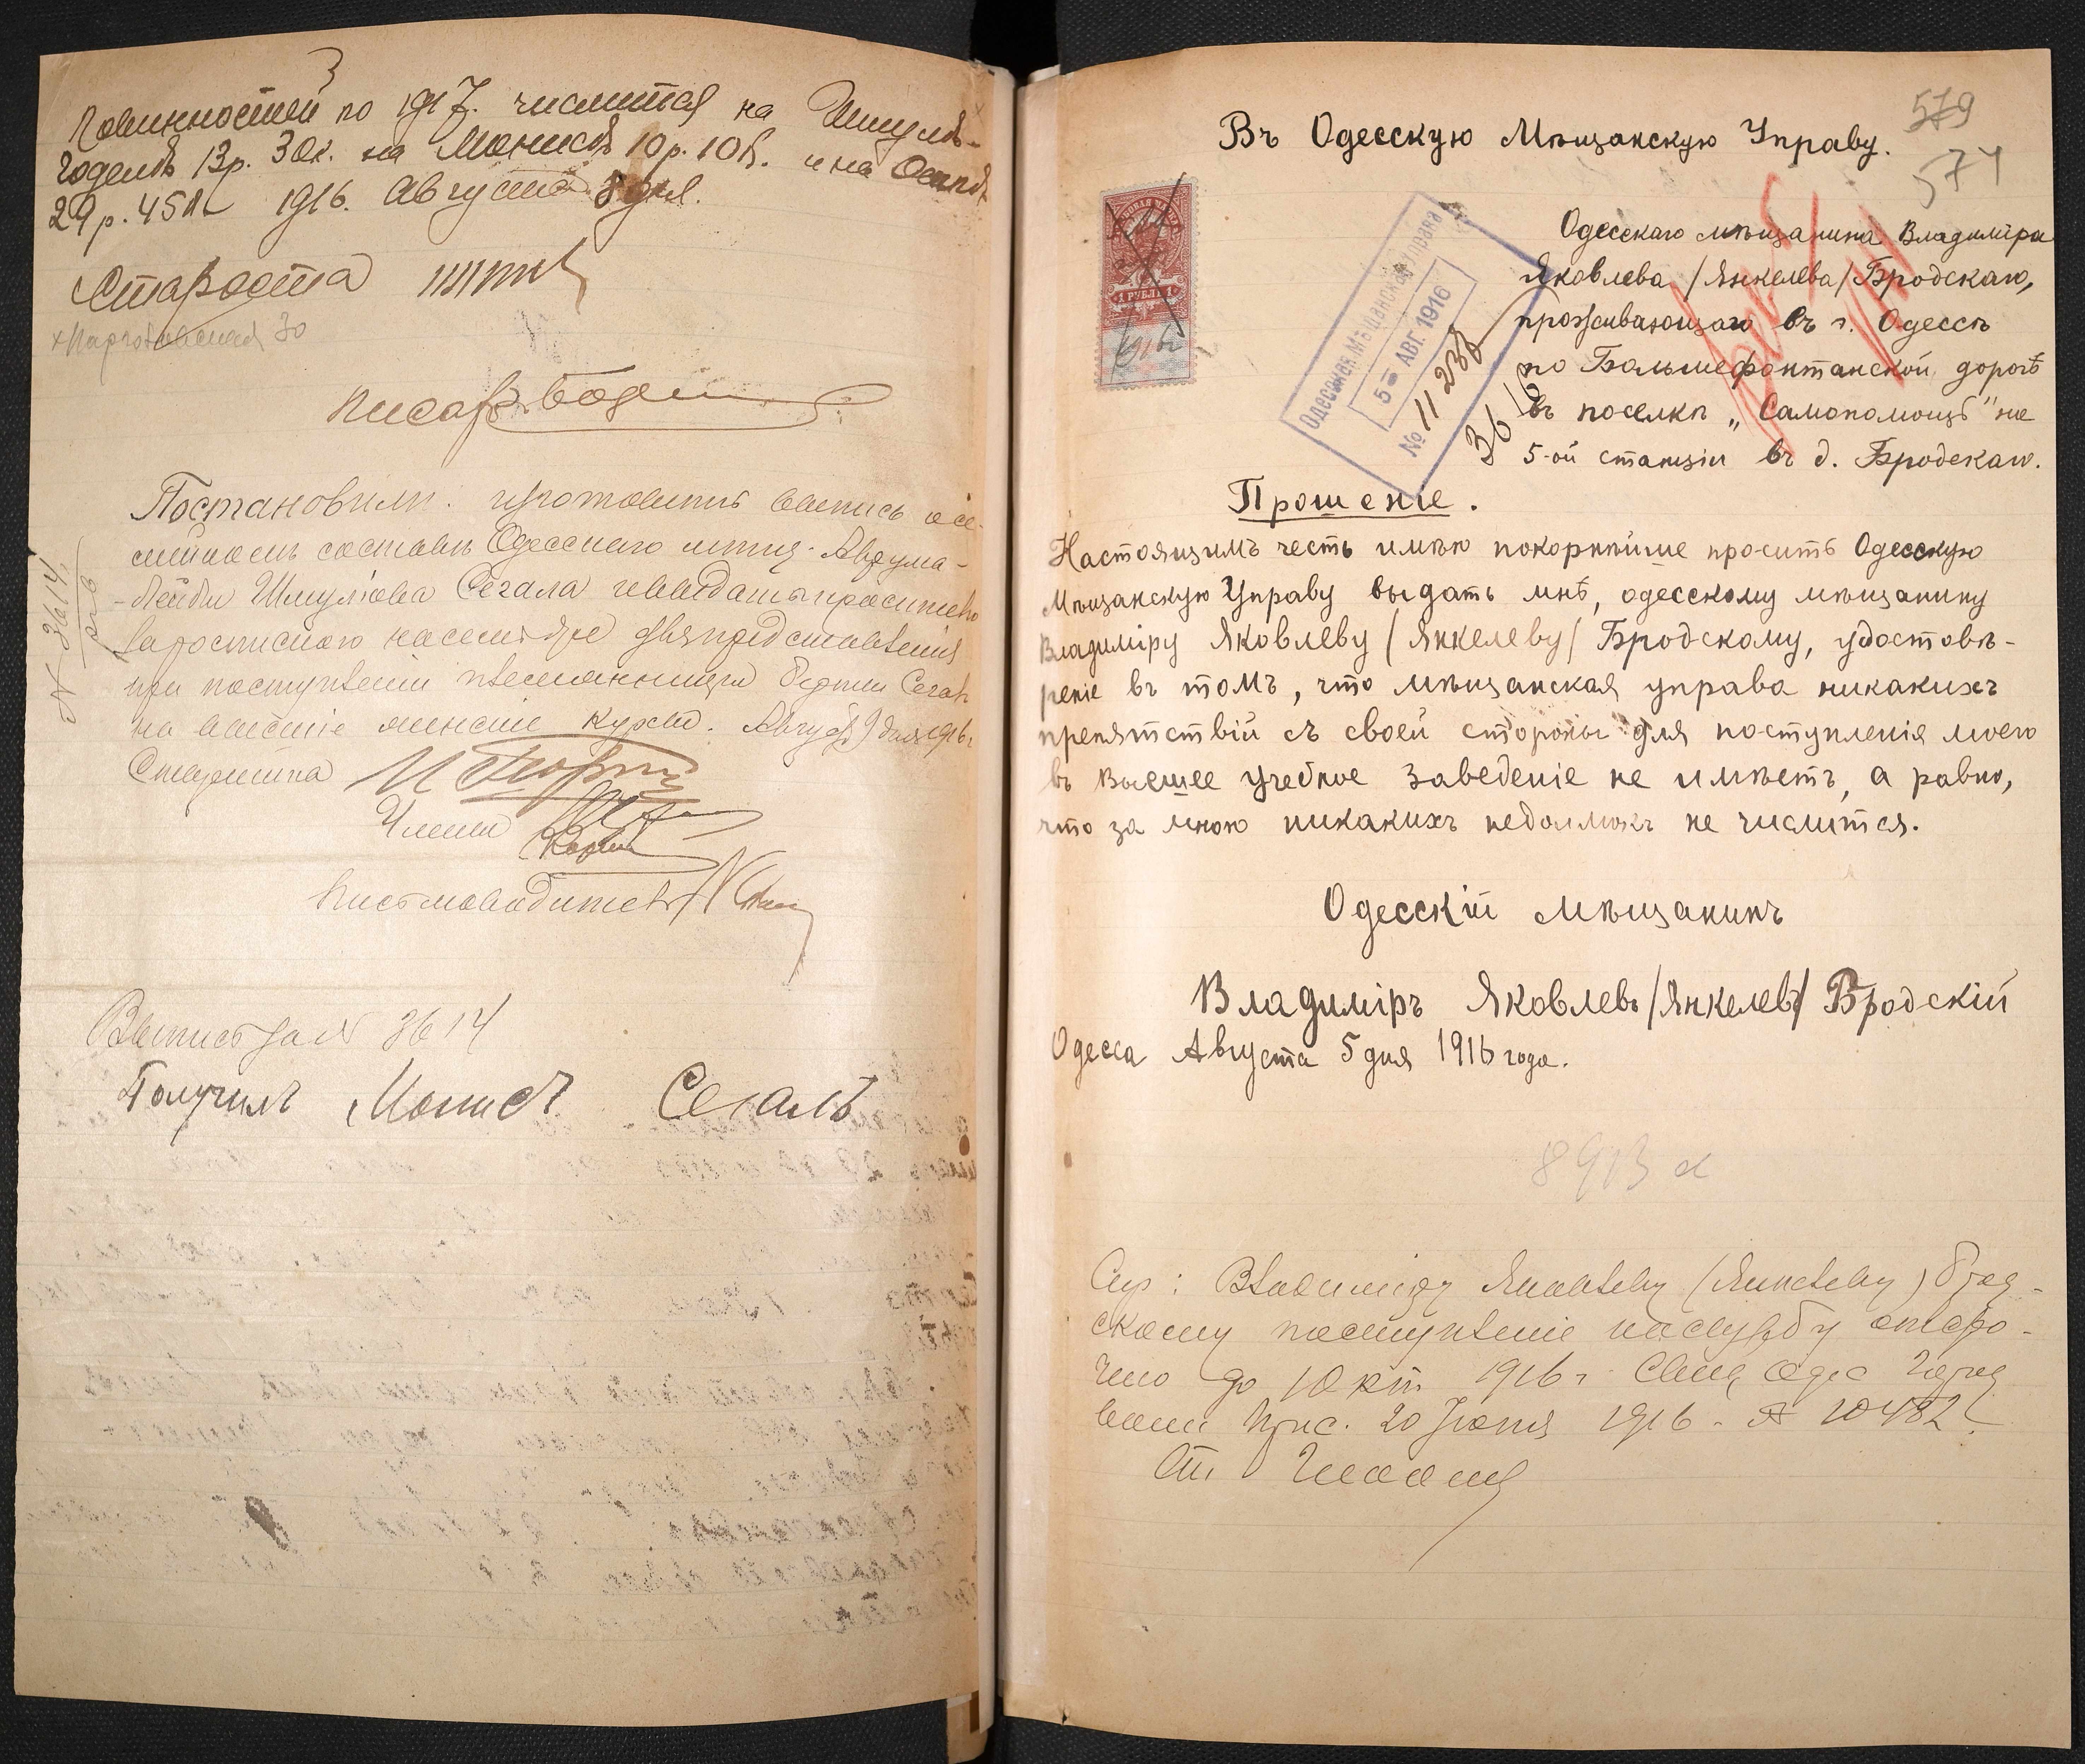 Повинностей по 1917 г. числится на Шмуль-
Годель 13 р. 30 к. на Монись 10 р. 10 к. и на Осипъ
29 р. 45 к. 1916. Августа 8 дня.
Староста
Писарь
Постановили: изготовить выпись о се-
мейномъ составѣ Одесскаго мѣщ. Аврума-
-Лейбы Шмулiова Сегала и выдать просителю
для представленiя
при поступленiи племянницы Сегалъ
на высшiе женскiе курсы. Августа 9 дня 1916 г.
№ 3614
Старшина
Члены
Письмоводитель
Выпись за № 3614
Получилъ Монисъ Сегалъ
579
574
Въ Одесскую Мѣщанскую Управу.
1 РУБЛЬ 1
1916 г
Одесская Мѣщанская Управа
5 - АВГ. 1916
№ 11238
Одесскаго мѣщанина Владимiра
Яковлева /Янкелева/ Бродскаго,
проживающаго въ г. Одессѣ
по Большефонтанской дорогѣ
въ поселкѣ „Самопомощь" на
5-ой станцiи въ д. Бродскаго.
Прошенiе.
Настоящимъ честь имѣю покорнѣйше просить Одесскую
Мѣщанскую Управу выдать мнѣ, одесскому мѣщанину
Владимiру Яковлеву /Янкелеву/ Бродскому, удостовѣ-
ренiе въ томъ, что мѣщанская управа никакихъ
препятствiй съ своей стороны для поступленiя моего
въ высшее учебное заведенiе не имѣетъ, а равно,
что за мною никакихъ недоимокъ не числится.
Одесскiй мѣщанинъ
Владимiръ Яковлевъ /Янкелевъ/ Бродскiй
Одесса Августа 5 дня 1916 года.
8913
Владимiру Яковлеву (Янкелеву) Брод-
скому поступленiе на службу отсро-
чено до 1 Окт 1916 г.
Прис. 20 Iюня 1916 - № 10482